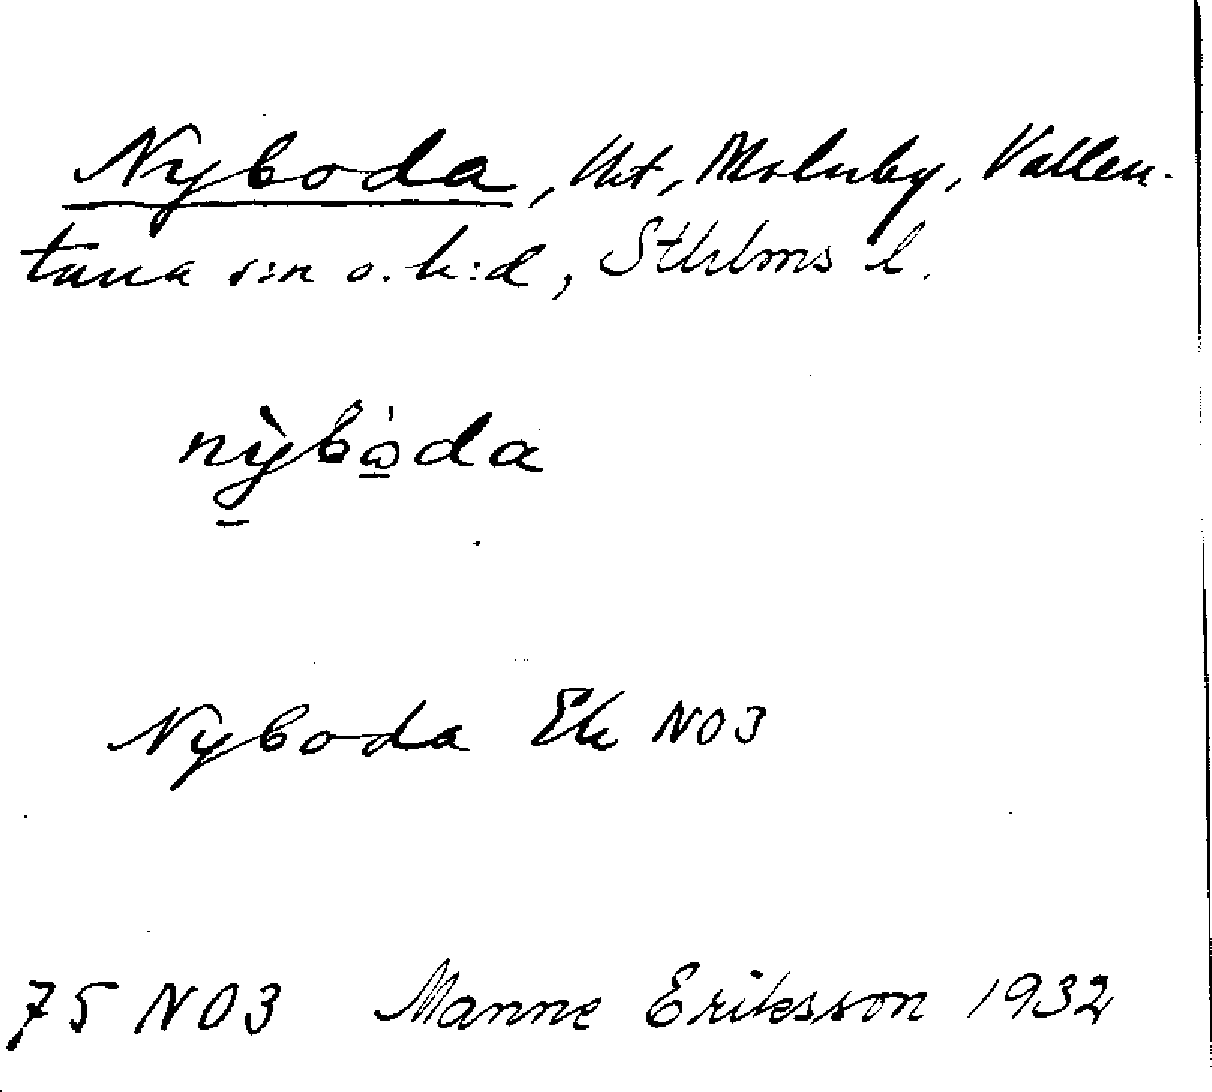 Nyboda, lht, Molnby, Vallen-
tuna s:n o. h:d, Sthlms l.
nỳbòda
Nyboda Ek NO3
75 NO3 Manne Eriksson 1932